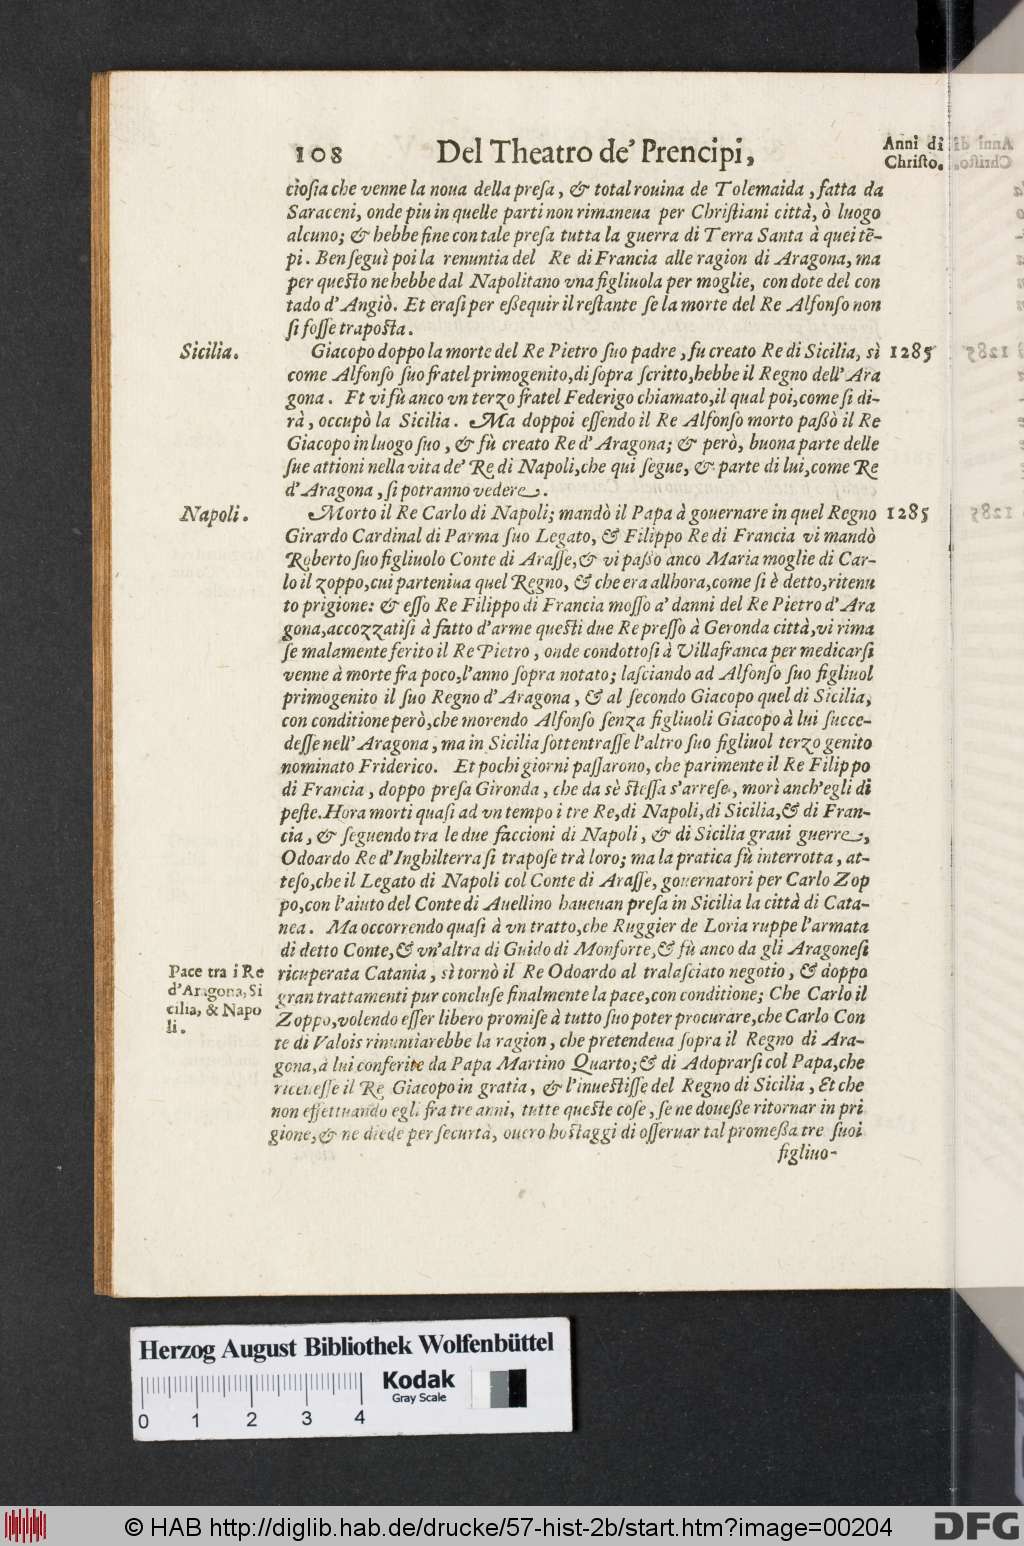 108 Del Theatro de' Prencipi, Anni di Christo.
ciosia che venne la noua della presa, & total rouina de Tolemaida, fatta da
Saraceni, onde piu in quelle parti non rimaneua per Christiani città, ò luogo
alcuno; & hebbe fine con tale presa tutta la guerra di Terra Santa à quei tẽ-
pi. Ben seguì poi la renuntia del Re di Francia alle ragion di Aragona, ma
per questo ne hebbe dal Napolitano vna figliuola per moglie, con dote del con
tado d'Angiò. Et erasi per essequir il restante se la morte del Re Alfonso non
si fosse traposta.
Sicilia. Giacopo doppo la morte del Re Pietro suo padre, fu creato Re di Sicilia, sì 1285
come Alfonso suo fratel primogenito, di sopra scritto, hebbe il Regno dell'Ara
gona. Et vi fù anco vn terzo fratel Federigo chiamato, il qual poi, come si di-
rà, occupò la Sicilia. Ma doppoi essendo il Re Alfonso morto passò il Re
Giacopo in luogo suo, & fù creato Re d'Aragona; & però, buona parte delle
sue attioni nella vita de' Re di Napoli, che qui segue, & parte di lui, come Re
d'Aragona, si potranno vedere.
Napoli. Morto il Re Carlo di Napoli; mandò il Papa à gouernare in quel Regno 1285
Girardo Cardinal di Parma suo Legato, & Filippo Re di Francia vi mandò
Roberto suo figliuolo Conte di Arasse, & vi passo anco Maria moglie di Car-
lo il zoppo, cui parteniua quel Regno, & che era allhora, come si è detto, ritenu
to prigione: & esso Re Filippo di Francia mosso a' danni del Re Pietro d'Ara
gona, accozzatisi à fatto d'arme questi due Re presso à Geronda città, vi rima
se malamente ferito il Re Pietro, onde condottosi à Villafranca per medicarsi
venne à morte fra poco, l'anno sopra notato; lasciando ad Alfonso suo figliuol
primogenito il suo Regno d'Aragona, & al secondo Giacopo quel di Sicilia,
con conditione però, che morendo Alfonso senza figliuoli Giacopo à lui succe-
desse nell'Aragona, ma in Sicilia sottentrasse l'altro suo figliuol terzo genito
nominato Friderico. Et pochi giorni passarono, che parimente il Re Filippo
di Francia, doppo presa Gironda, che da sè stessa s'arrese, morì anch'egli di
peste. Hora morti quasi ad vn tempo i tre Re, di Napoli, di Sicilia, & di Fran-
cia, & seguendo tra le due faccioni di Napoli, & di Sicilia graui guerre,
Odoardo Re d'Inghilterra si trapose trà loro; ma la pratica fù interrotta, at-
teso, che il Legato di Napoli col Conte di Arasse, gouernatori per Carlo Zop
po, con l'aiuto del Conte di Auellino haueuan presa in Sicilia la città di Cata-
nea. Ma occorrendo quasi à vn tratto, che Ruggier de Loria ruppe l'armata
di detto Conte, & vn'altra di Guido di Monforte, & fù anco da gli Aragonesi
Pace tra i Re
d'Aragona, Si
cilia, & Napo
li.
ricuperata Catania, sì tornò il Re Odoardo al tralasciato negotio, & doppo
gran trattamenti pur concluse finalmente la pace, con conditione; Che Carlo il
Zoppo, volendo esser libero promise à tutto suo poter procurare, che Carlo Con
te di Valois rinuntiarebbe la ragion, che pretendeua sopra il Regno di Ara-
gona, à lui conferite da Papa Martino Quarto; & di Adoprarsi col Papa, che
riceuesse il Re Giacopo in gratia, & l'inuestisse del Regno di Sicilia, Et che
non effettuando egli fra tre anni, tutte queste cose, se ne douesse ritornar in pri
gione, & ne diede per securtà, ouero hostaggi di osseruar tal promessa tre suoi
figliuo-
Herzog August Bibliothek Wolfenbüttel
0 1 2 3 4
Kodak
Gray Scale
© HAB http://diglib.hab.de/drucke/57-hist-2b/start.htm?image=00204
DFG